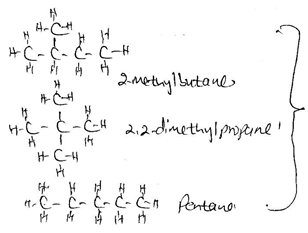 H
H-C-H
H H H
H-C-C-C-C-H
H H H H
2-methylbutane
H
H-C-H
H H
H-C-C-C-H
H H
H-C-H
H
2,2-dimethylpropane
H H H H H
H-C-C-C-C-C-H
H H H H H
Pentane